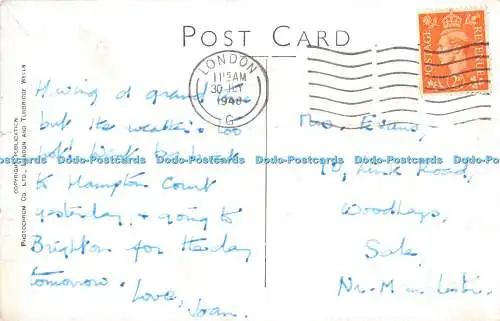 POST CARD
LONDON
11 15 AM
30 JLY
1948
G
POSTAGE
REVENUE
2D
COPYRIGHT PUBLICATION
PHOTOCHROM CO. LTD., LONDON AND TUNBRIDGE WELLS
Having a grand time
but the weather's too
hot! Went to
to Hampton Court
yesterday, & going to
Brighton for the day
tomorrow. Love,
Joan.
Mrs. Evans,
10, Link Road,
Woodheys,
Sale,
Nr. Manchester.
Dodo-Postcards Dodo-Postcards Dodo-Postcards Dodo-Postcards Dodo-Postcards Dodo-Postcards